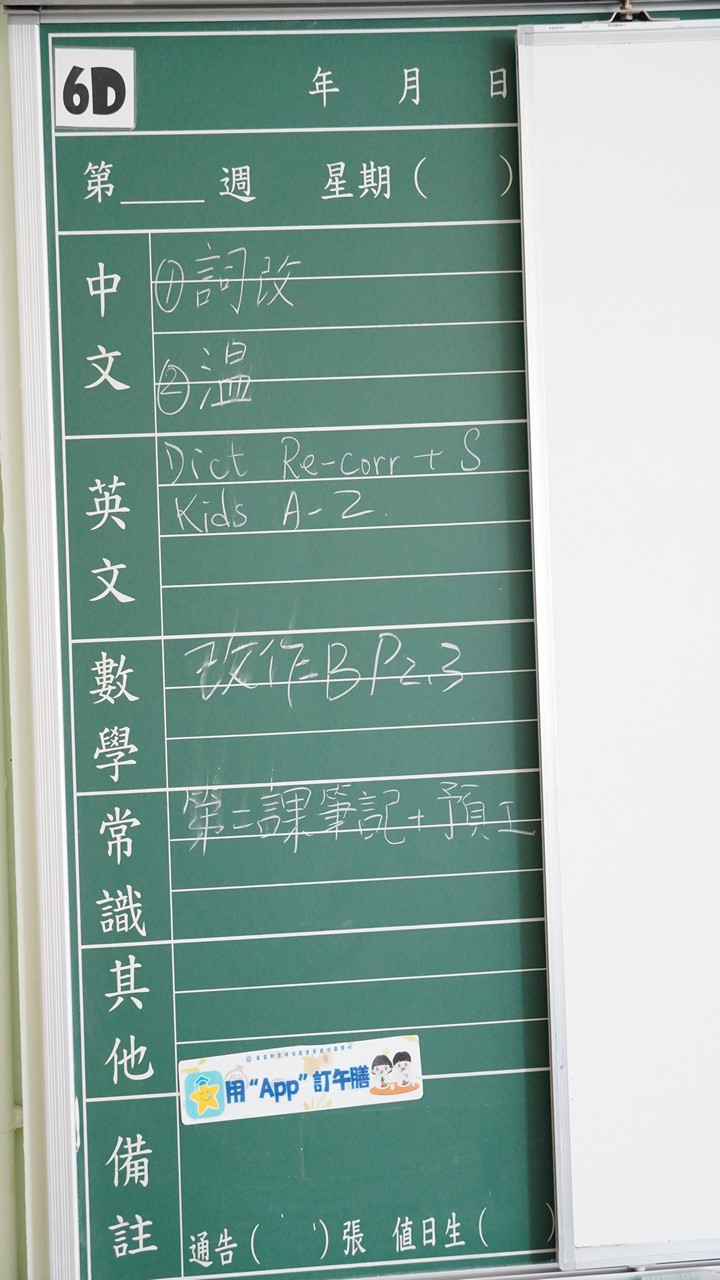 6D
年 月 日
第____週 星期( )
中文
①詞改
②溫
英文
Dict Re-corr + S
Kids A-Z.
數學
改作B P2,3
常識
第二課筆記+預工
其他
用“App”訂午膳
備註
通告( )張 值日生( )